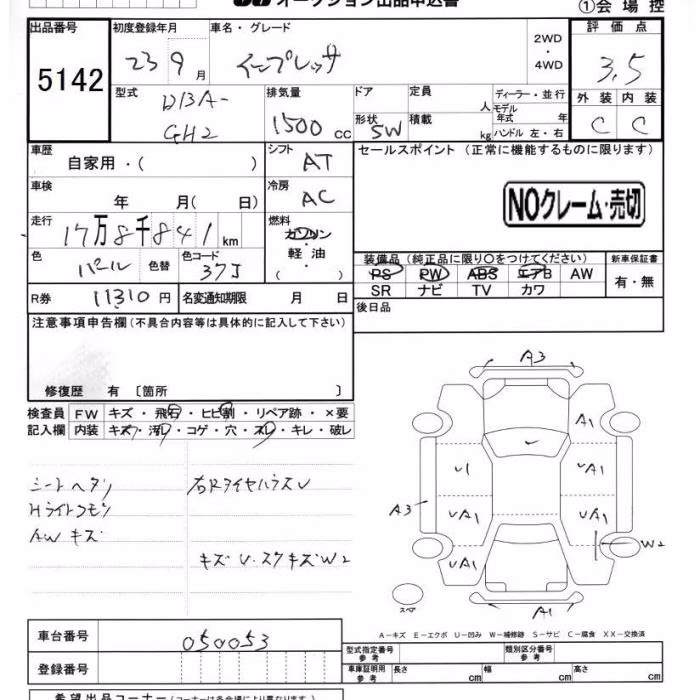 オークション出品申込書
①会場控
出品番号 初度登録年月 車名・グレード 評価点
5142 23 9月 インプレッサ 2WD・4WD 3.5
型式 DBA-GH2 排気量 1500 cc ドア 形状 SW 定員 人 積載 kg ディーラー・並行 モデル年式 年 ハンドル 左・右 外装 内装
C C
車歴 自家用・( ) シフト AT セールスポイント (正常に機能するものに限ります)
車検 年 月( 日) 冷房 AC NOクレーム・売切
走行 17万8千841km 燃料 ガソリン・軽油・( )
色 パール 色替 色コード 37J 装備品(純正品に限り○をつけてください) 新車保証書
PS PW ABS エアB AW 有・無
SR ナビ TV カワ
R券 11310円 名変通知期限 月 日 後日品
注意事項申告欄(不具合内容等は具体的に記入して下さい)
修復歴 有 〔箇所 〕
検査員 FW キズ・飛石・ヒビ割・リペア跡・×要
記入欄 内装 キズ・汚れ・コゲ・穴・スレ・キレ・破レ
シートヘタリ
Hライトクモリ
AWキズ
キズU.スリキズW2
A3
A1
U1 UA1
A3 UA1 UA1
UA1 W2
スペア A1
A-キズ E-エクボ U-凹み W-補修跡 S-サビ C-腐食 XX-交換済
車台番号 050053
登録番号
型式指定番号 参考 類別区分番号 参考
車庫証明用 参考 長さ cm 幅 cm 高さ cm
希望出品コーナー(コーナーは各会場により異なります)